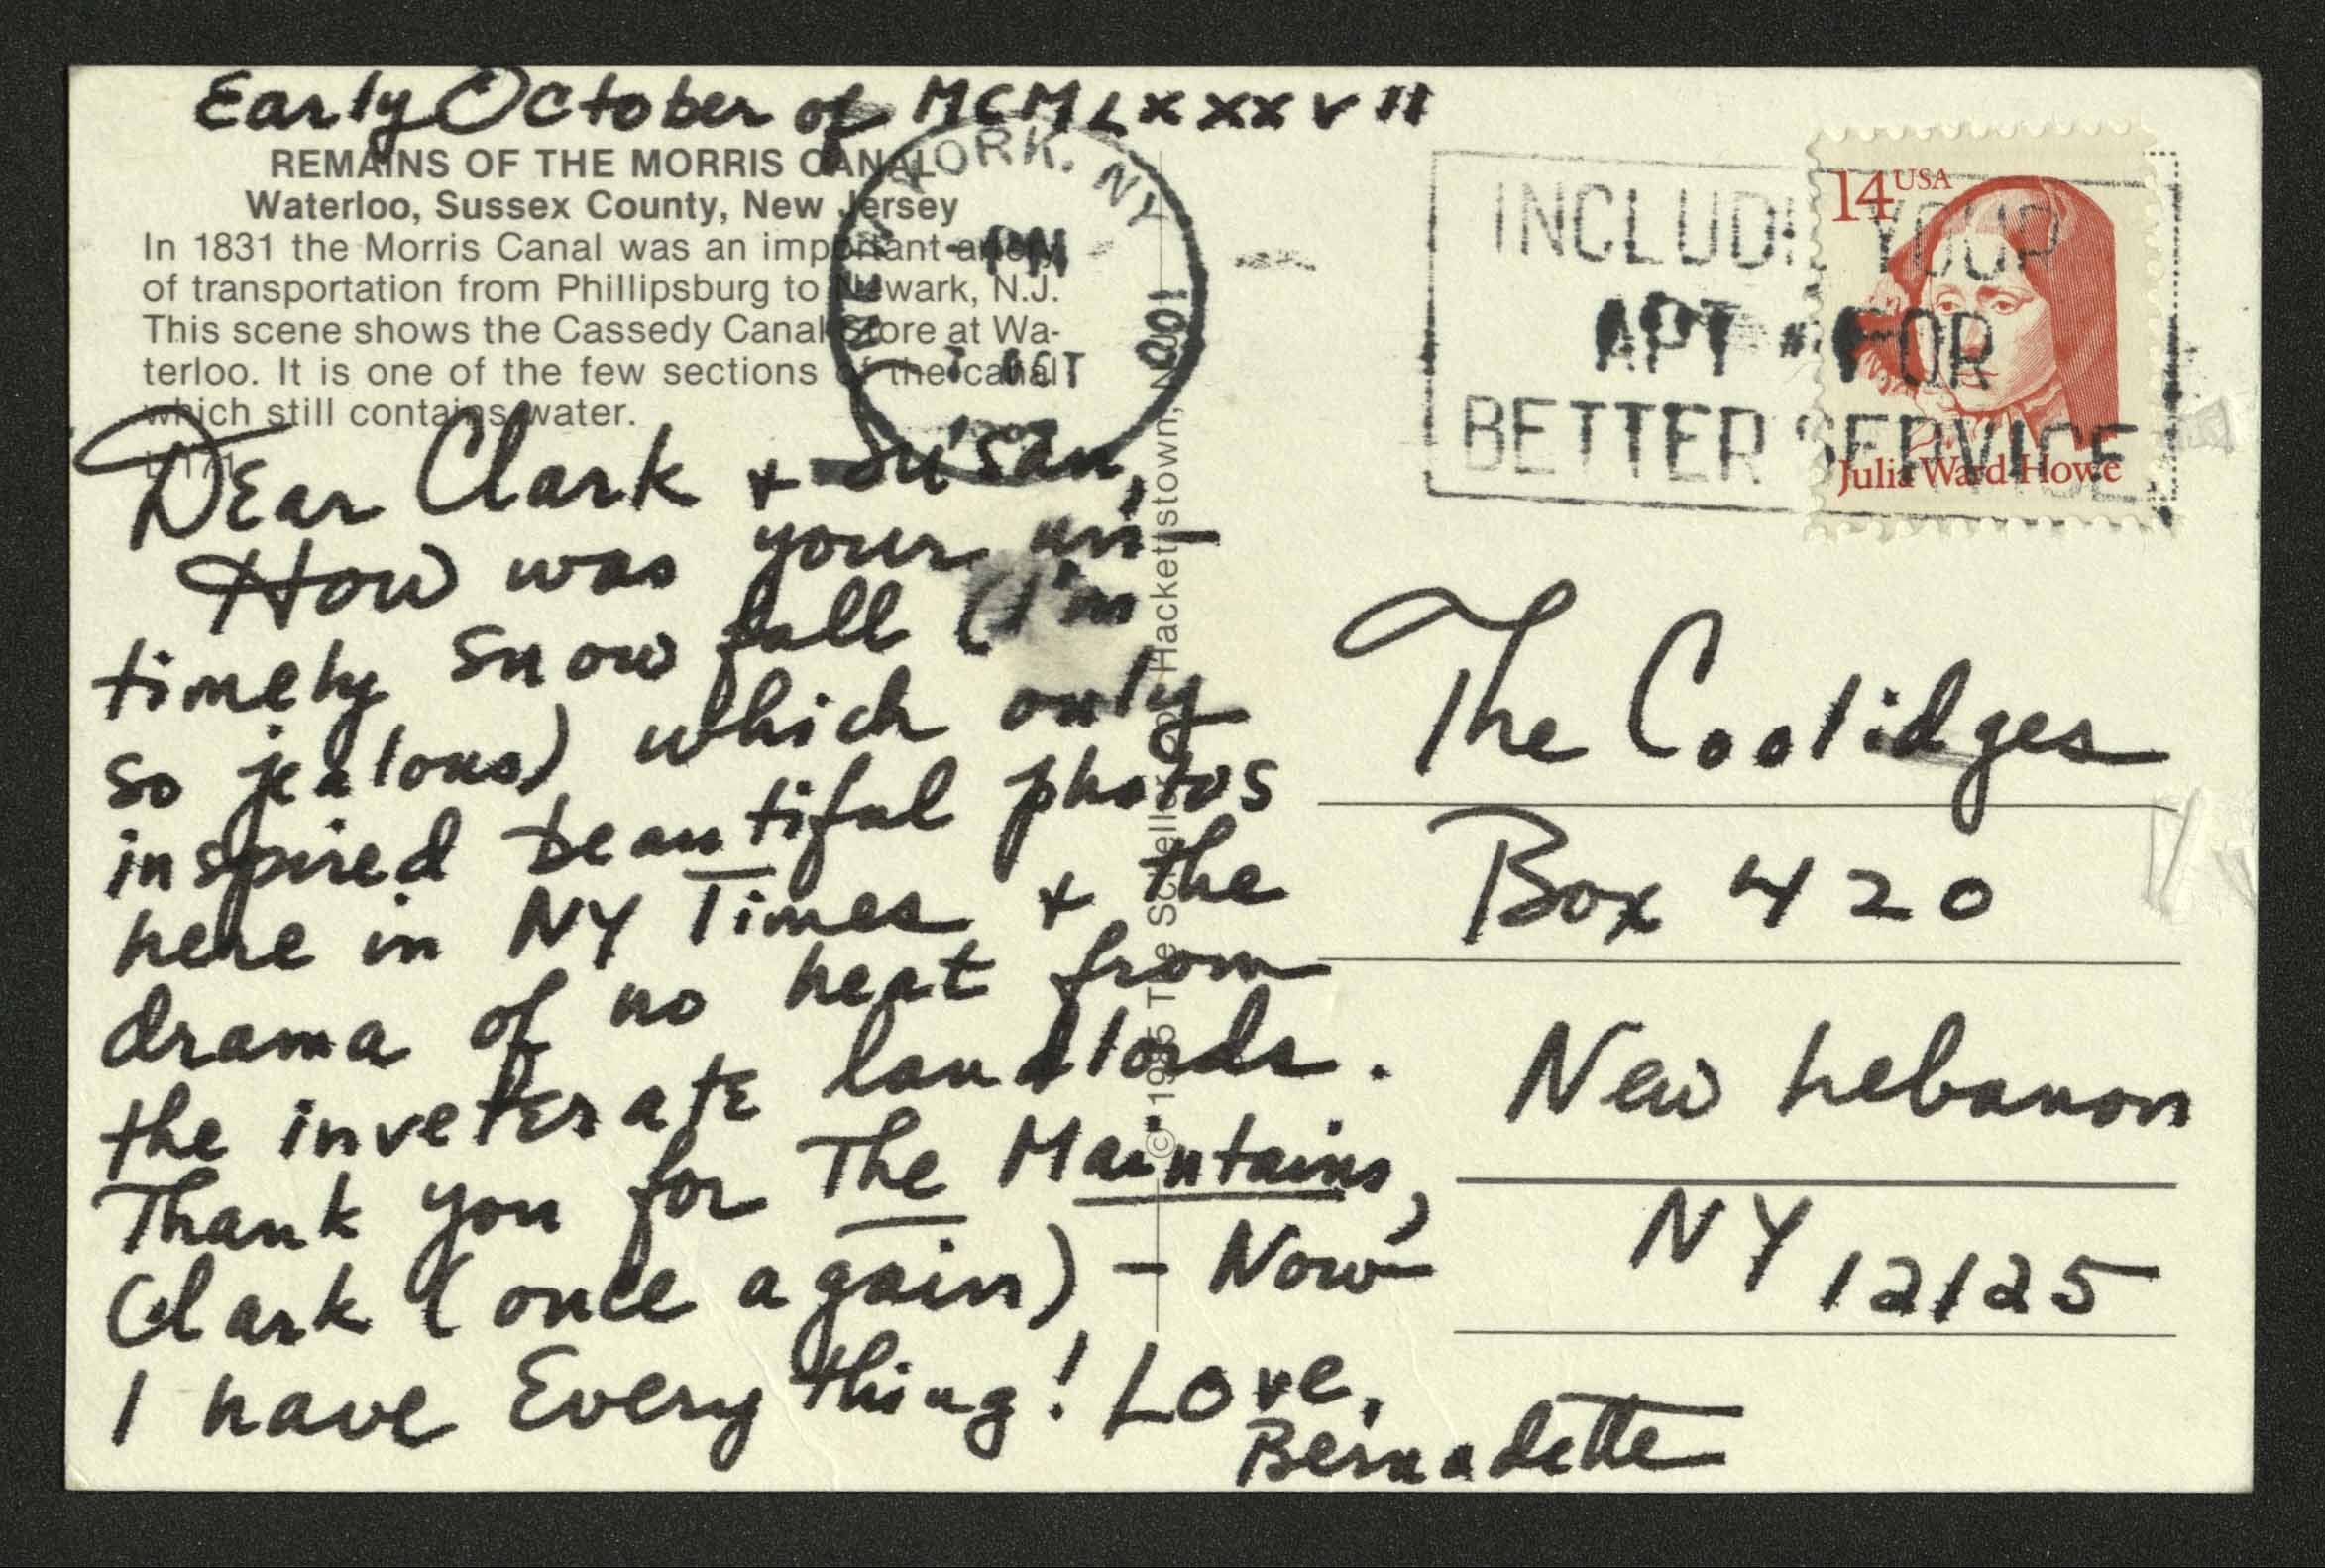 Early October of MCMLXXXVII
REMAINS OF THE MORRIS CANAL
Waterloo, Sussex County, New Jersey
In 1831 the Morris Canal was an important artery
of transportation from Phillipsburg to Newark, N.J.
This scene shows the Cassedy Canal Store at Wa-
terloo. It is one of the few sections of the canal
which still contains water.
Dear Clark + Susan,
How was your un-
timely snow fall (I'm
so jealous) which only
inspired beautiful photos
here in NY Times + the
drama of no heat from
the inveterate landlords.
Thank you for The Maintains,
Clark (once again) – Now
I have Everything! Love,
Bernadette
YORK, NY
PM
OCT
1001
INCLUDE YOUR
APT # FOR
BETTER SERVICE
14 USA
Julia Ward Howe
The Coolidges
Box 420
New Lebanon
NY 12125
Hackettstown,